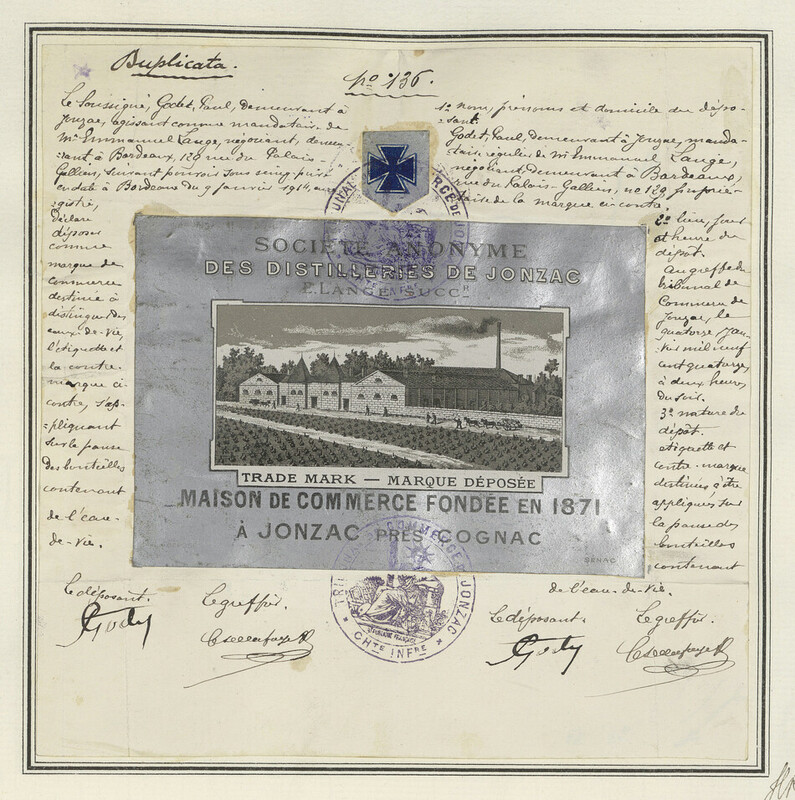 Duplicata.
No 136.
Le Soussigné, Godet, Paul, demeurant à
Jonzac, agissant comme mandataire de
Mr Emmanuel Lange, négociant, demeu-
rant à Bordeaux, 129 rue du Palais-
Gallien, suivant pouvoir sous seing privé
en date à Bordeaux du 9 janvier 1914, enre-
gistré,
Déclare
déposer
comme
marque de
commerce
destinée à
distinguer des
eaux-de-vie,
l'étiquette et
la contre-
marque ci-
contre, s'ap-
pliquant
sur la panse
des bouteilles
contenant
de l'eau-
de-vie.
Le déposant.
Le greffier.
Godet
1o nom, prénoms et domicile du dépo-
sant.
Godet, Paul, demeurant à Jonzac, manda-
taire régulier de Mr Emmanuel Lange,
négociant, demeurant à Bordeaux,
rue du Palais-Gallien, no 129, proprié-
taire de la marque ci-contre.
2o lieu, jour
et heure du
dépôt.
Au greffe du
tribunal de
Commerce de
Jonzac, le
quatorze jan-
vier mil neuf
cent quatorze
à deux heures
du soir.
3o nature du
dépôt.
étiquette et
contre-marque
destinées à être
appliquées sur
la panse des
bouteilles
contenant
de l'eau-de-vie.
Le déposant.
Le greffier.
Godet
SOCIÉTÉ ANONYME
DES DISTILLERIES DE JONZAC
E. LANGE SUCCR
TRADE MARK — MARQUE DÉPOSÉE
MAISON DE COMMERCE FONDÉE EN 1871
À JONZAC PRÈS COGNAC
GENAC
TRIBUNAL DE COMMERCE DE JONZAC
CHTE INFRE